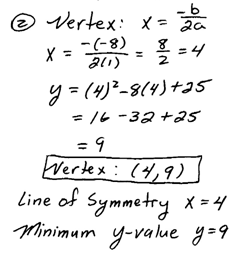 ② Vertex: x = -b/2a
x = -(-8)/2(1) = 8/2 = 4
y = (4)²-8(4)+25
= 16-32+25
= 9
Vertex: (4,9)
Line of Symmetry x=4
Minimum y-value y=9